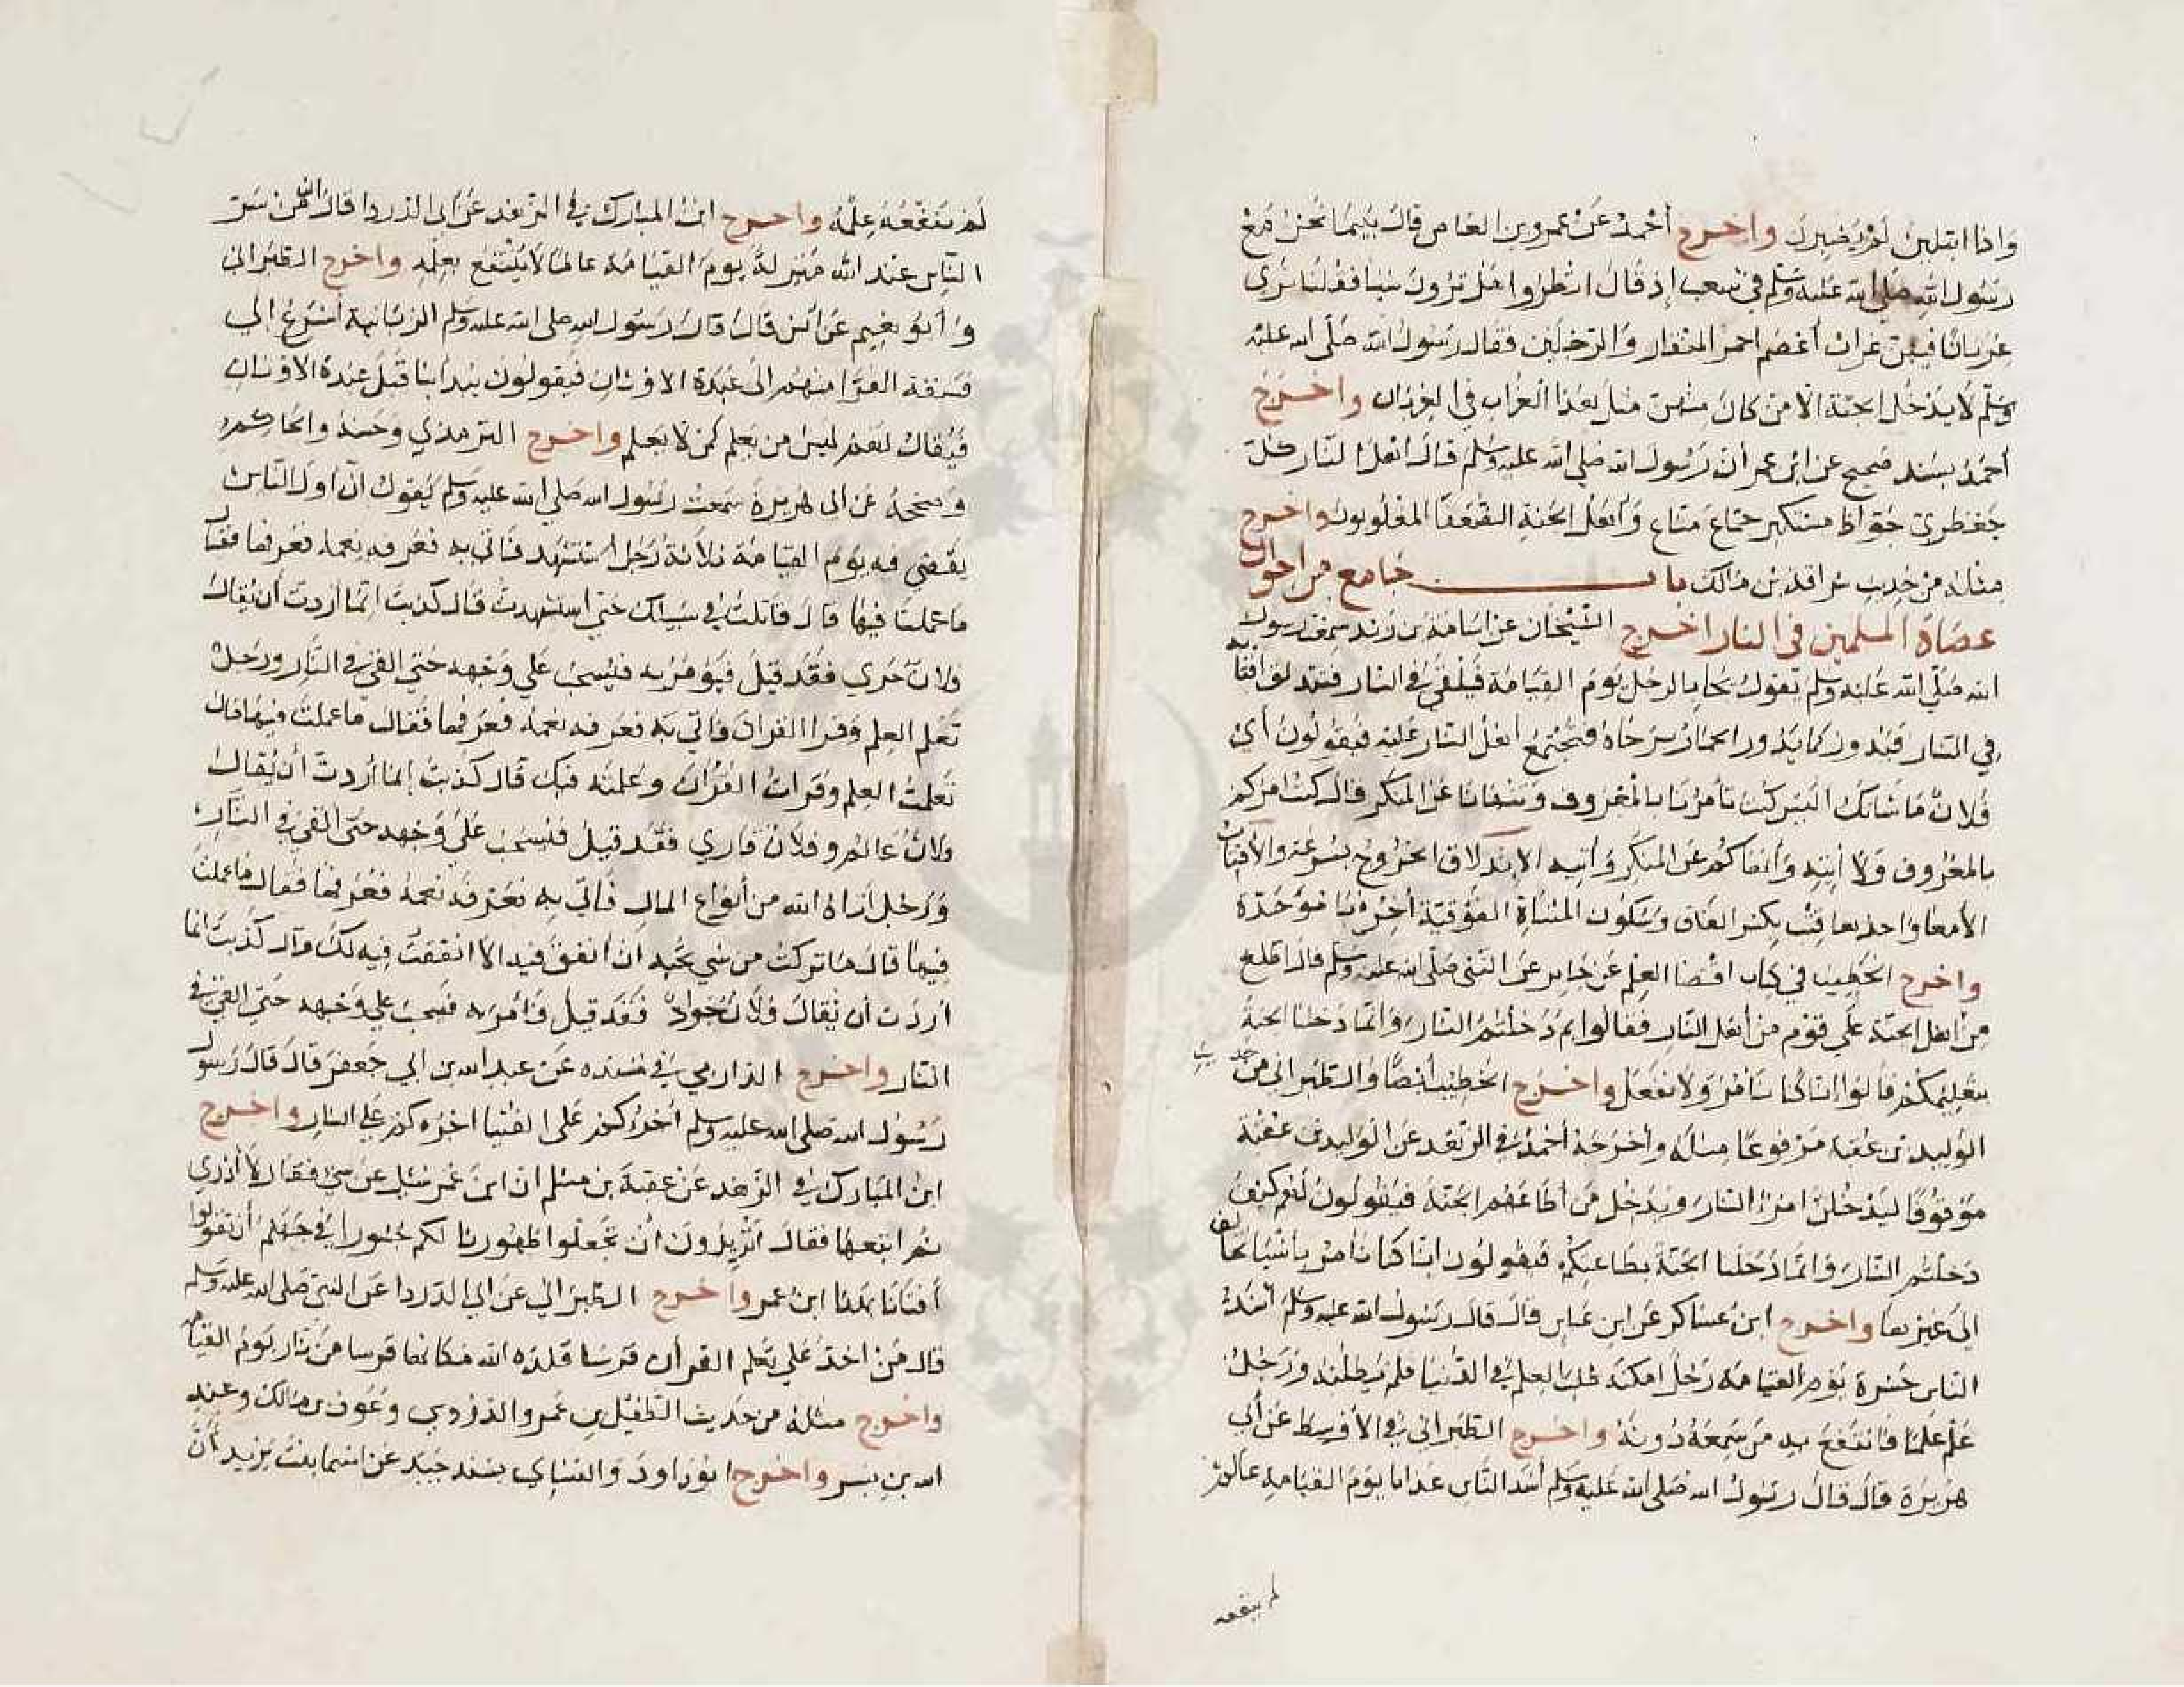 واذا ابتلين لم يصبرن واخرج أحمد عن عمرو بن العاص قال بينما نحن مع
رسول الله صلى الله عليه وسلم في شعب إذ قال انظروا هل ترون شيئا فقلنا نرى
غربانا فيهن غراب أعصم احمر المنقار والرجلين فقال رسول الله صلى الله عليه
وسلم لا يدخل الجنة الا من كان منهن مثل هذا الغراب في الغربان واخرج
أحمد بسند صحيح عن ابن عمر أن رسول الله صلى الله عليه وسلم قال اهل النار كل
جعظري جواظ مستكبر جماع مناع وأهل الجنة الضعفا المغلوبون واخرج
مثله من حديث سراقة بن مالك باب جامع من احوال
عصاة المسلمين في النار اخرج الشيخان عن اسامة بن زيد سمعت رسول
الله صلى الله عليه وسلم يقول يجا بالرجل يوم القيامة فيلقى في النار فتندلق اقتابه
في النار فيدور كما يدور الحمار برحاه فيجتمع أهل النار عليه فيقولون أي
فلان ما شانك اليس كنت تأمرنا بالمعروف وتنهانا عن المنكر قال كنت امركم
بالمعروف ولا أتيه وأنهاكم عن المنكر وأتيه الاندلاق الخروج بسرعة والأقتاب
الأمعا واحدها قتب بكسر القاف وسكون المثناة الفوقية أخره با موحدة
واخرج الخطيب في كتاب اقتضا العلم عن جابر عن النبي صلى الله عليه وسلم قال اطلع
من اهل الجنة على قوم من أهل النار فقالوا بم دخلتم النار وانما دخلنا الجنة
بتعليمكم قالوا انا كنا نأمر ولا نفعل واخرج الخطيب أيضا والطبراني من حديث
الوليد بن عقبة مرفوعا مثله وأخرجه أحمد في الزهد عن الوليد بن عقبة
موقوفا ليدخلن امرا النار ويدخل من أطاعهم الجنة فيقولون لهم كيف
دخلتم النار وانما دخلنا الجنة بطاعتكم فيقولون انا كنا نأمر باشيا نخالف
الى غيرها واخرج ابن عساكر عن ابن عباس قال قال رسول الله عليه وسلم اشد
الناس حسرة يوم القيامة رجل امكنه طلب العلم في الدنيا فلم يطلبه ورجل
علم علما فانتفع به من سمعه دونه واخرج الطبراني في الأوسط عن أبي
هريرة قال قال رسول الله صلى الله عليه وسلم أشد الناس عذابا يوم القيامة عالم
لم ينفعه
لم ينفعه علمه واخرج ابن المبارك في الزهد عن ابي الدردا قال ان من شر
الناس عند الله منزلة يوم القيامة عالما لا ينتفع بعلمه واخرج الطبراني
وأبو نعيم عن أنس قال قال رسول الله صلى الله عليه وسلم الزبانية أسرع الي
فسقة القرا منهم الى عبدة الاوثان فيقولون يبدأ بنا قبل عبدة الاوثان
فيقال لهم ليس من يعلم كمن لا يعلم واخرج الترمذي وحسنه والحاكم
وصححه عن ابي هريرة سمعت رسول الله صلى الله عليه وسلم يقول ان أول الناس
يقضى فيه يوم القيامة ثلاثة رجل استشهد فأتي به فعرفه نعمه فعرفها فقال
ما عملت فيها قال قاتلت في سبيلك حتى استشهدت قال كذبت انما أردت أن يقال
فلان جري فقد قيل فيؤمر به فيسحب على وجهه حتى القي في النار ورجل
تعلم العلم وقرا القرآن فأتي به فعرفه نعمه فعرفها فقال ما عملت فيها قال
تعلمت العلم وقرات القرآن وعلمته فيك قال كذبت إنما أردت أن يقال
فلان عالم وفلان قاري فقد قيل فيسحب على وجهه حتى القي في النار
ورجل اتاه الله من أنواع المال فأتي به فعرفه نعمه فعرفها فقال ما عملت
فيها قال ما تركت من شي تحب ان انفق فيه الا انفقت فيه لك قال كذبت انما
أردت أن يقال فلان جواد فقد قيل فأمر به فسحب على وجهه حتى القي في
النار واخرج الدارمي في مسنده عن عبد الله بن ابي جعفر قال قال رسول
رسول الله صلى الله عليه وسلم أجرؤكم على الفتيا اجرءكم على النار واخرج
ابن المبارك في الزهد عن عقبة بن مسلم ان ابن عمر سئل عن شي فقال لا أدري
ثم اتبعها فقال أتريدون أن تجعلوا ظهورنا لكم جسورا في جهنم أن تقولوا
أفتانا بهذا ابن عمر واخرج الطبراني عن ابي الدردا عن النبي صلى الله عليه وسلم
قال من اخذ على تعلم القرآن قوسا قلده الله مكانها قوسا من نار يوم القيامة
واخرج مثله من حديث الطفيل بن عمرو الدوسي وعوف بن مالك وعبد
الله بن بسر واخرج ابو داود والنسائي بسند جيد عن اسما بنت يزيد أن